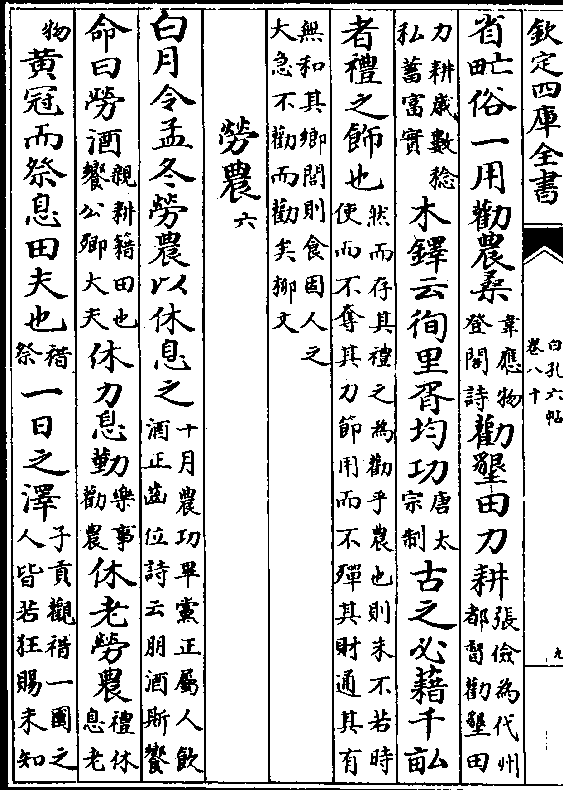 欽定四庫全書
白孔六帖
卷八十
九
省甿俗一用勸農桑韋應物登閣詩勸墾田力耕張儉為代州都督勸墾田
力耕歲數稔私蓄富實木鐸云徇里胥均功唐太宗制古之必藉千畝
者禮之飾也然而存其禮之為勸乎農也則未不若時使而不奪其力節用而不殫其財通其有
無和其鄉閭則食固人之大急不勸而勸矣栁文
勞農六
白月令孟冬勞農以休息之十月農功畢黨正屬人飲酒正齒位詩云朋酒斯饗
命曰勞酒親耕籍田也饗公卿大夫休力息勤樂事勸農休老勞農禮休息老
物黃冠而祭息田夫也䄍祭一日之澤子貢觀䄍一國之人皆若狂賜未知